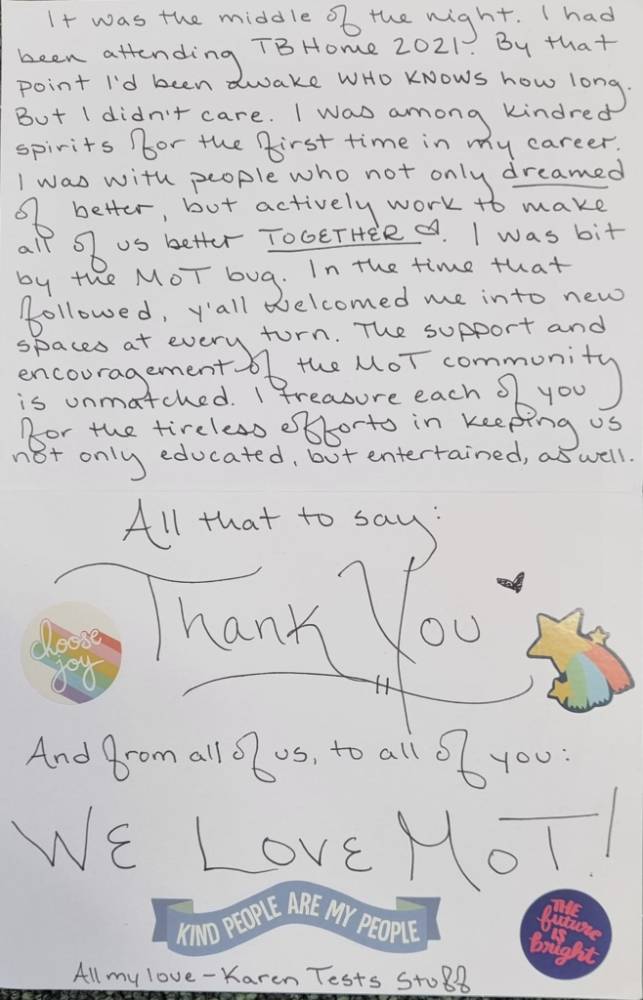 It was the middle of the night. I had
been attending TBHome 2021. By that
point I'd been awake WHO KNOWS how long.
But I didn't care. I was among kindred
spirits for the first time in my career.
I was with people who not only dreamed
of better, but actively work to make
all of us better TOGETHER ♡. I was bit
by the MoT bug. In the time that
followed, y'all welcomed me into new
spaces at every turn. The support and
encouragement of the MoT community
is unmatched. I treasure each of you
for the tireless efforts in keeping us
not only educated, but entertained, as well.
All that to say:
Thank You
choose
joy
And from all of us, to all of you:
WE LOVE MoT!
KIND PEOPLE ARE MY PEOPLE
THE
future
IS
bright
All my love - Karen Tests Stuff